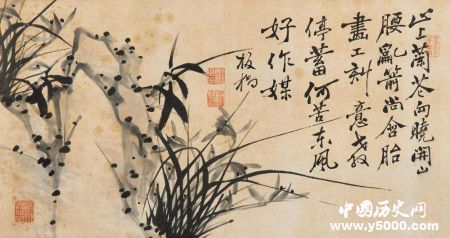 山上蘭花向曉開山
腰亂箭尚含胎
畫工刻意教
停蓄何苦東風
好作媒
板橋
中國历史网
www.y5000.com